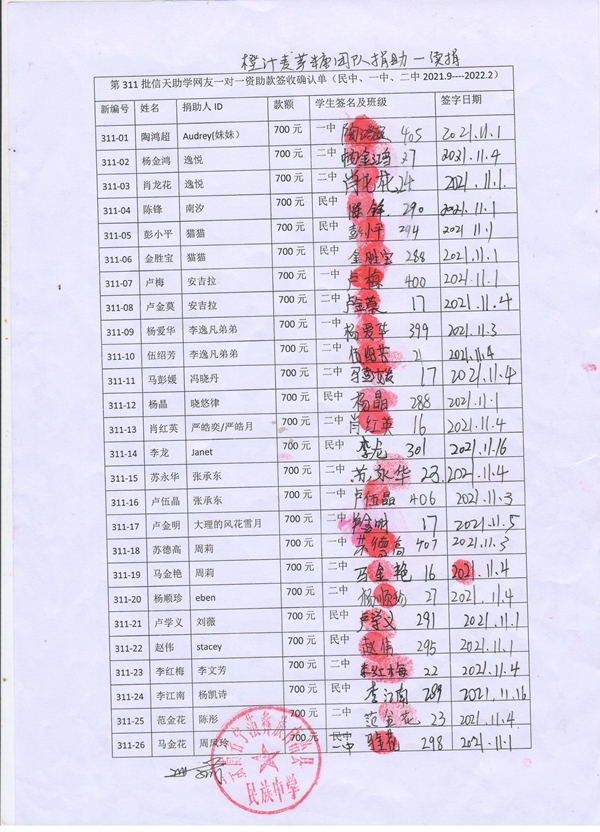 橙汁麦芽糖团队捐助一债捐
第 311 批信天助学网友一对一资助款签收确认单（民中、一中、二中 2021.9----2022.2）
新编号 姓名 捐助人 ID 款额 学生签名及班级 签字日期
311-01 陶鸿超 Audrey(妹妹） 700 元 一中 陶鸿超 405 2021.11.1
311-02 杨金鸿 逸悦 700 元 二中 杨金鸿 27 2021.11.4
311-03 肖龙花 逸悦 700 元 二中 肖龙花 24 2021.11.1
311-04 陈锋 南汐 700 元 民中 陈锋 290 2021.11.1
311-05 彭小平 猫猫 700 元 民中 彭小平 294 2021 11.1
311-06 金胜宝 猫猫 700 元 民中 金胜宝 288 2021.11.1
311-07 卢梅 安吉拉 700 元 一中 卢梅 400 2021.11.1
311-08 卢金莫 安吉拉 700 元 二中 卢金莫 17 2021.11.4
311-09 杨爱华 李逸凡弟弟 700 元 一中 杨爱华 399 2021.11.3
311-10 伍绍芳 李逸凡弟弟 700 元 二中 伍绍芳 21 2021.11.4
311-11 马彭媛 冯晓丹 700 元 二中 马彭媛 17 2021.11.4
311-12 杨晶 晓悠律 700 元 民中 杨晶 288 2021.11.1
311-13 肖红英 严皓奕/严皓月 700 元 二中 肖红英 16 2021.11.4
311-14 李龙 Janet 700 元 民中 李龙 301 2021.11.16
311-15 苏永华 张承东 700 元 二中 苏永华 23 2021.11.4
311-16 卢伍晶 张承东 700 元 一中 卢伍晶 406 2021.11.3
311-17 卢金明 大理的风花雪月 700 元 二中 卢金明 17 2021.11.5
311-18 苏德高 周莉 700 元 一中 苏德高 407 2021.11.3
311-19 马金艳 周莉 700 元 二中 马金艳 16 2021.11.4
311-20 杨顺珍 eben 700 元 二中 杨顺珍 27 2021.11.4
311-21 卢学义 刘薇 700 元 民中 卢学义 291 2021.11.1
311-22 赵伟 stacey 700 元 民中 赵伟 295 2021.11.1
311-23 李红梅 李文芳 700 元 二中 李红梅 22 2021.11.4
311-24 李江南 杨凯诗 700 元 民中 李江南 289 2021.11.16
311-25 范金花 陈彤 700 元 二中 范金花 23 2021.11.4
311-26 马金花 周凤玲 700 元 民中 一中 马金花 298 2021.11.1
民族中学